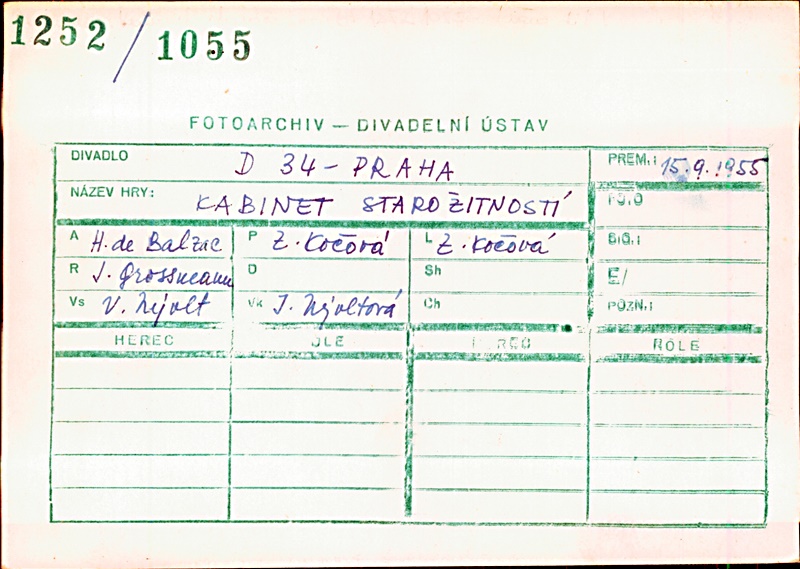 1252 / 1055
FOTOARCHIV — DIVADELNÍ ÚSTAV
DIVADLO D 34 - PRAHA PREM.: 15.9.1955
NÁZEV HRY: KABINET STAROŽITNOSTÍ FOTO
A H. de Balzac P Z. Kočová L Z. Kočová SIG.:
R J. Grossmann D Sh E/
Vs V. Nývlt Vk J. Nývltová Ch POZN.:
HEREC ROLE HEREC ROLE